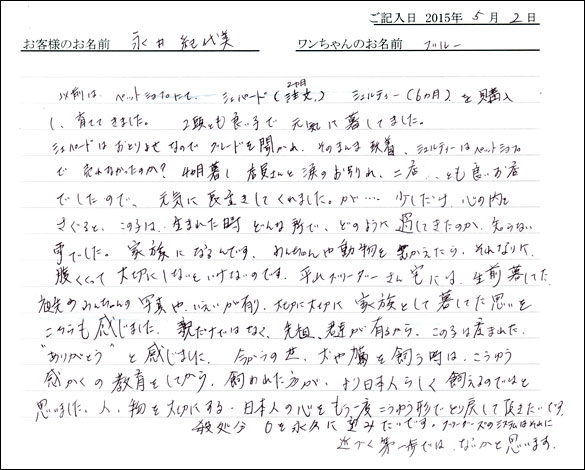 ご記入日 2015年 5月 2日
お客様のお名前 永井 紀代美 ワンちゃんのお名前 ブルー
以前は、ペットショプにて、シェパード(2カ月 注文、) シェルティー(6カ月)を購入
し、育ててきました。 2頭とも良い子で 元気に暮してました。
シェパードはおとりよせなので グレードを聞かれ、そのまんま到着、シェルティーはペットショプ
で 売れなかったのか? 4カ月暮し 店員さんと涙のお別れ、二店、とも良いお店
でしたので、元気に長生きしてくれました。が… 少しだけ 心の内を
さぐると、この子は、生まれた時 どんな所で、どのように過してきたのか、知らない
事でした。 家族になるんです。 わんちゃんや動物を むかえたら、それなりに
腹くくって 大切にしないといけないのです。 平山ブリーダーさん宅には、生前暮してた
祖先のわんちゃんの 写真や、いえいが有り、大切に大切に 家族として暮してた思いを
こちらも感じました。 親だけではなく、先祖、君達が有るから、この子は産まれた、
"ありがとう" と感じました、 今からの世、犬や猫を飼う時は、こうゆう
感かくの教育をしてから、飼われた方が、より日本人らしく 飼えるのではと
思いました、人、物を大切にする・日本人の心を もう一度こうゆう形でとり戻して頂きたいです。
殺処分 0を永久に望みたいです。ブリーダーズのシステムはそれに
近づく第一歩では、ないかと思います。